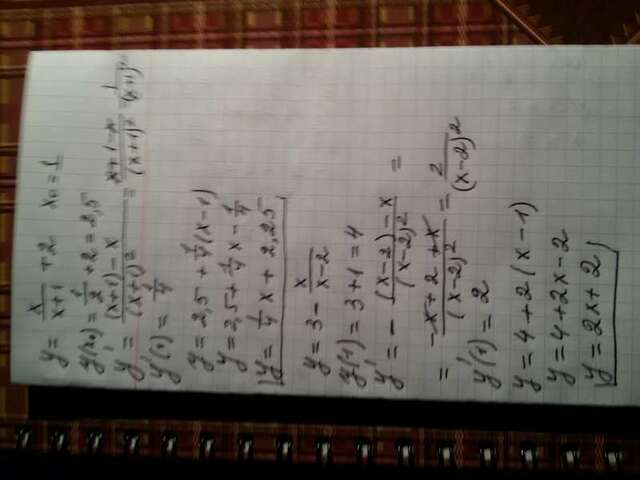 y = x/(x+1) + 2 x₀ = 1
y(x₀) = 1/2 + 2 = 2,5
y' = ((x+1) - x)/(x+1)² = (x+1-x)/(x+1)² = 1/(x+1)²
y'(1) = 1/4
y = 2,5 + 1/4(x-1)
y = 2,5 + 1/4x - 1/4
y = 1/4x + 2,25
y = 3 - x/(x-2)
y(1) = 3 + 1 = 4
y' = - ((x-2) - x)/(x-2)² =
= (-x+2+x)/(x-2)² = 2/(x-2)²
y'(1) = 2
y = 4 + 2(x-1)
y = 4 + 2x - 2
y = 2x + 2